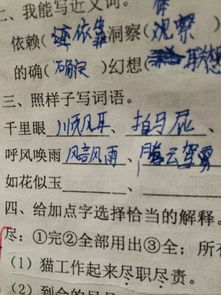 二、我能写近义词。
依赖(依靠)洞察(观察)
的确(确定)幻想(
三、照样子写词语。
千里眼 顺风耳、拍马屁
呼风唤雨 风言风雨、腾云驾雾
如花似玉
四、给加点字选择恰当的解释。
尽：①完②全部用出③全；所
(1) 猫工作起来尽职尽责。
(2)